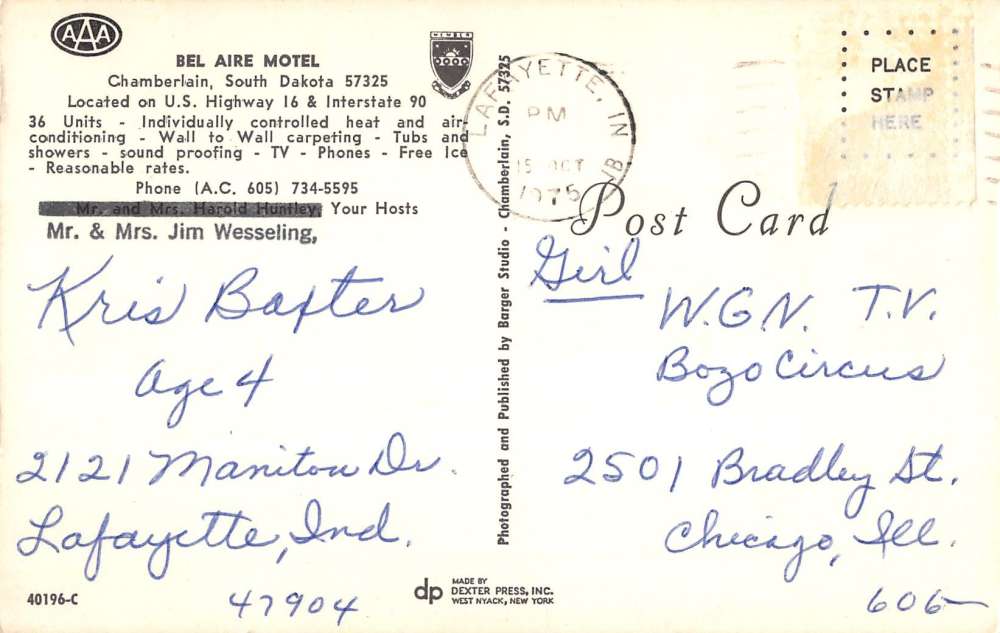 AAA
BEL AIRE MOTEL
Chamberlain, South Dakota 57325
Located on U.S. Highway 16 & Interstate 90
36 Units - Individually controlled heat and air-
conditioning - Wall to Wall carpeting - Tubs and
showers - sound proofing - TV - Phones - Free Ice
- Reasonable rates.
Phone (A.C. 605) 734-5595
Mr. and Mrs. Harold Huntley, Your Hosts
Mr. & Mrs. Jim Wesseling,
Kris Baxter
Age 4
2121 Manitou Dr.
Lafayette, Ind.
47904
40196-C
MEMBER
Photographed and Published by Barger Studio - Chamberlain, S.D. 57325
dp
MADE BY
DEXTER PRESS, INC.
WEST NYACK, NEW YORK
LAFAYETTE, IN
PM
15 OCT
1975
PLACE
STAMP
HERE
Post Card
Girl
W.G.N. T.V.
Bozo Circus
2501 Bradley St.
Chicago, Ill.
606